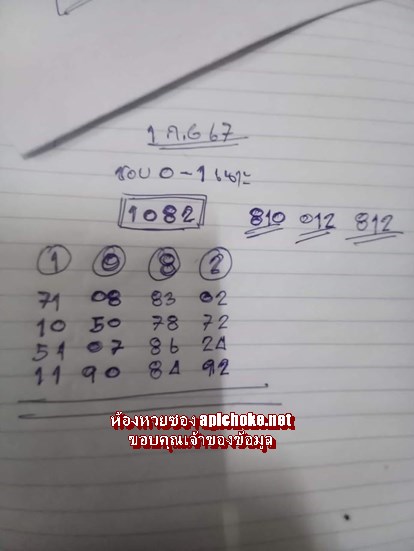 1 ก.ค 67
ชอบ 0 - 1 เน้าะ
1082 810 012 812
1 0 8 2
71 08 83 02
10 50 78 72
51 07 86 24
11 90 84 92
ห้องหวยซอง apichoke.net
ขอบคุณเจ้าของข้อมูล